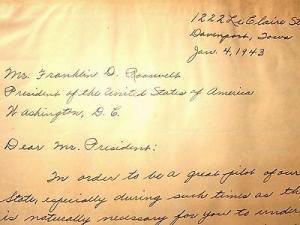 1222 Le Claire St
Davenport, Iowa
Jan. 4, 1943
Mr. Franklin D. Roosevelt
President of the United States of America
Washington, D. C.
Dear Mr. President:
In order to be a great pilot of our
State, especially during such times as th
is naturally necessary for you to under